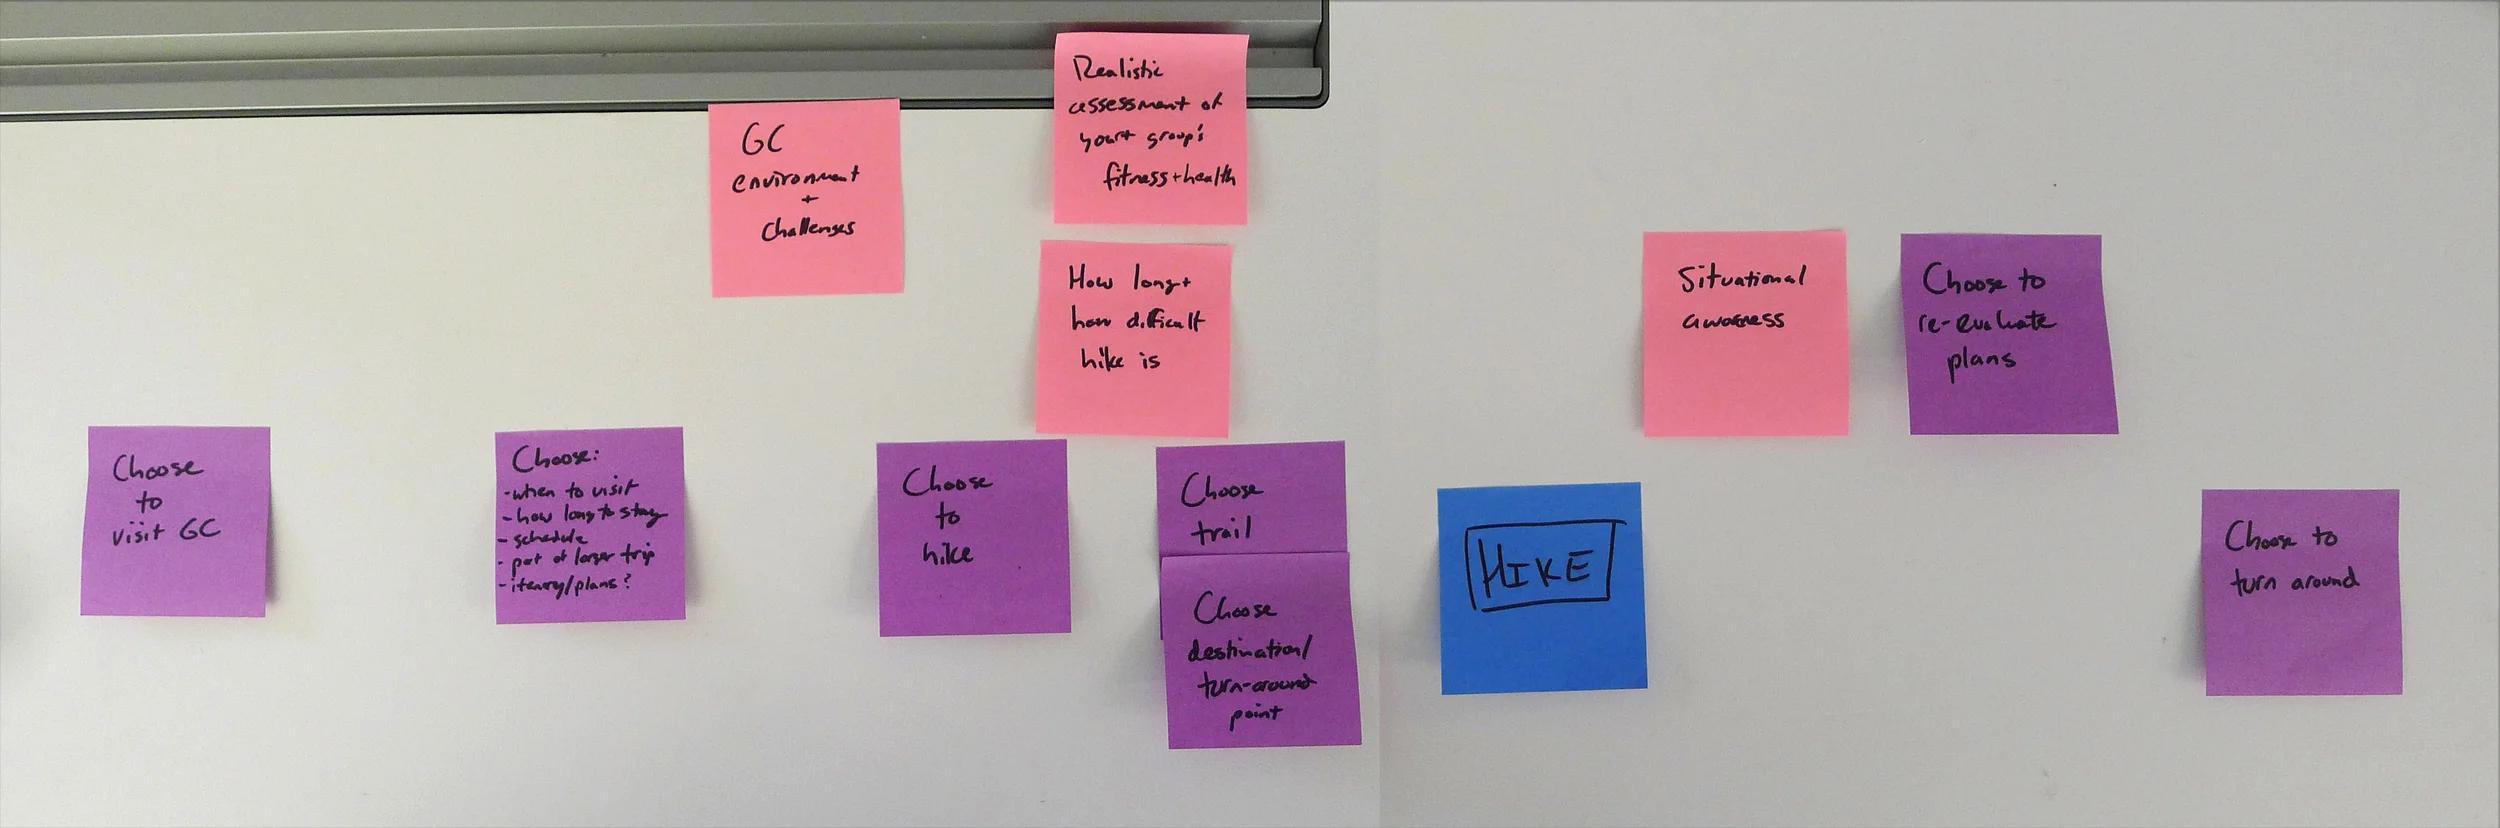 Realistic
assessment of
your group's
fitness + health
GC
environment
+
challenges
How long +
how difficult
hike is
Situational
awareness
Choose to
re-evaluate
plans
Choose
to
visit GC
Choose:
- when to visit
- how long to stay
- schedule
- part of larger trip
- itenery/plans?
Choose
to
hike
Choose
trail
Choose
destination/
turn-around
point
HIKE
Choose to
turn around